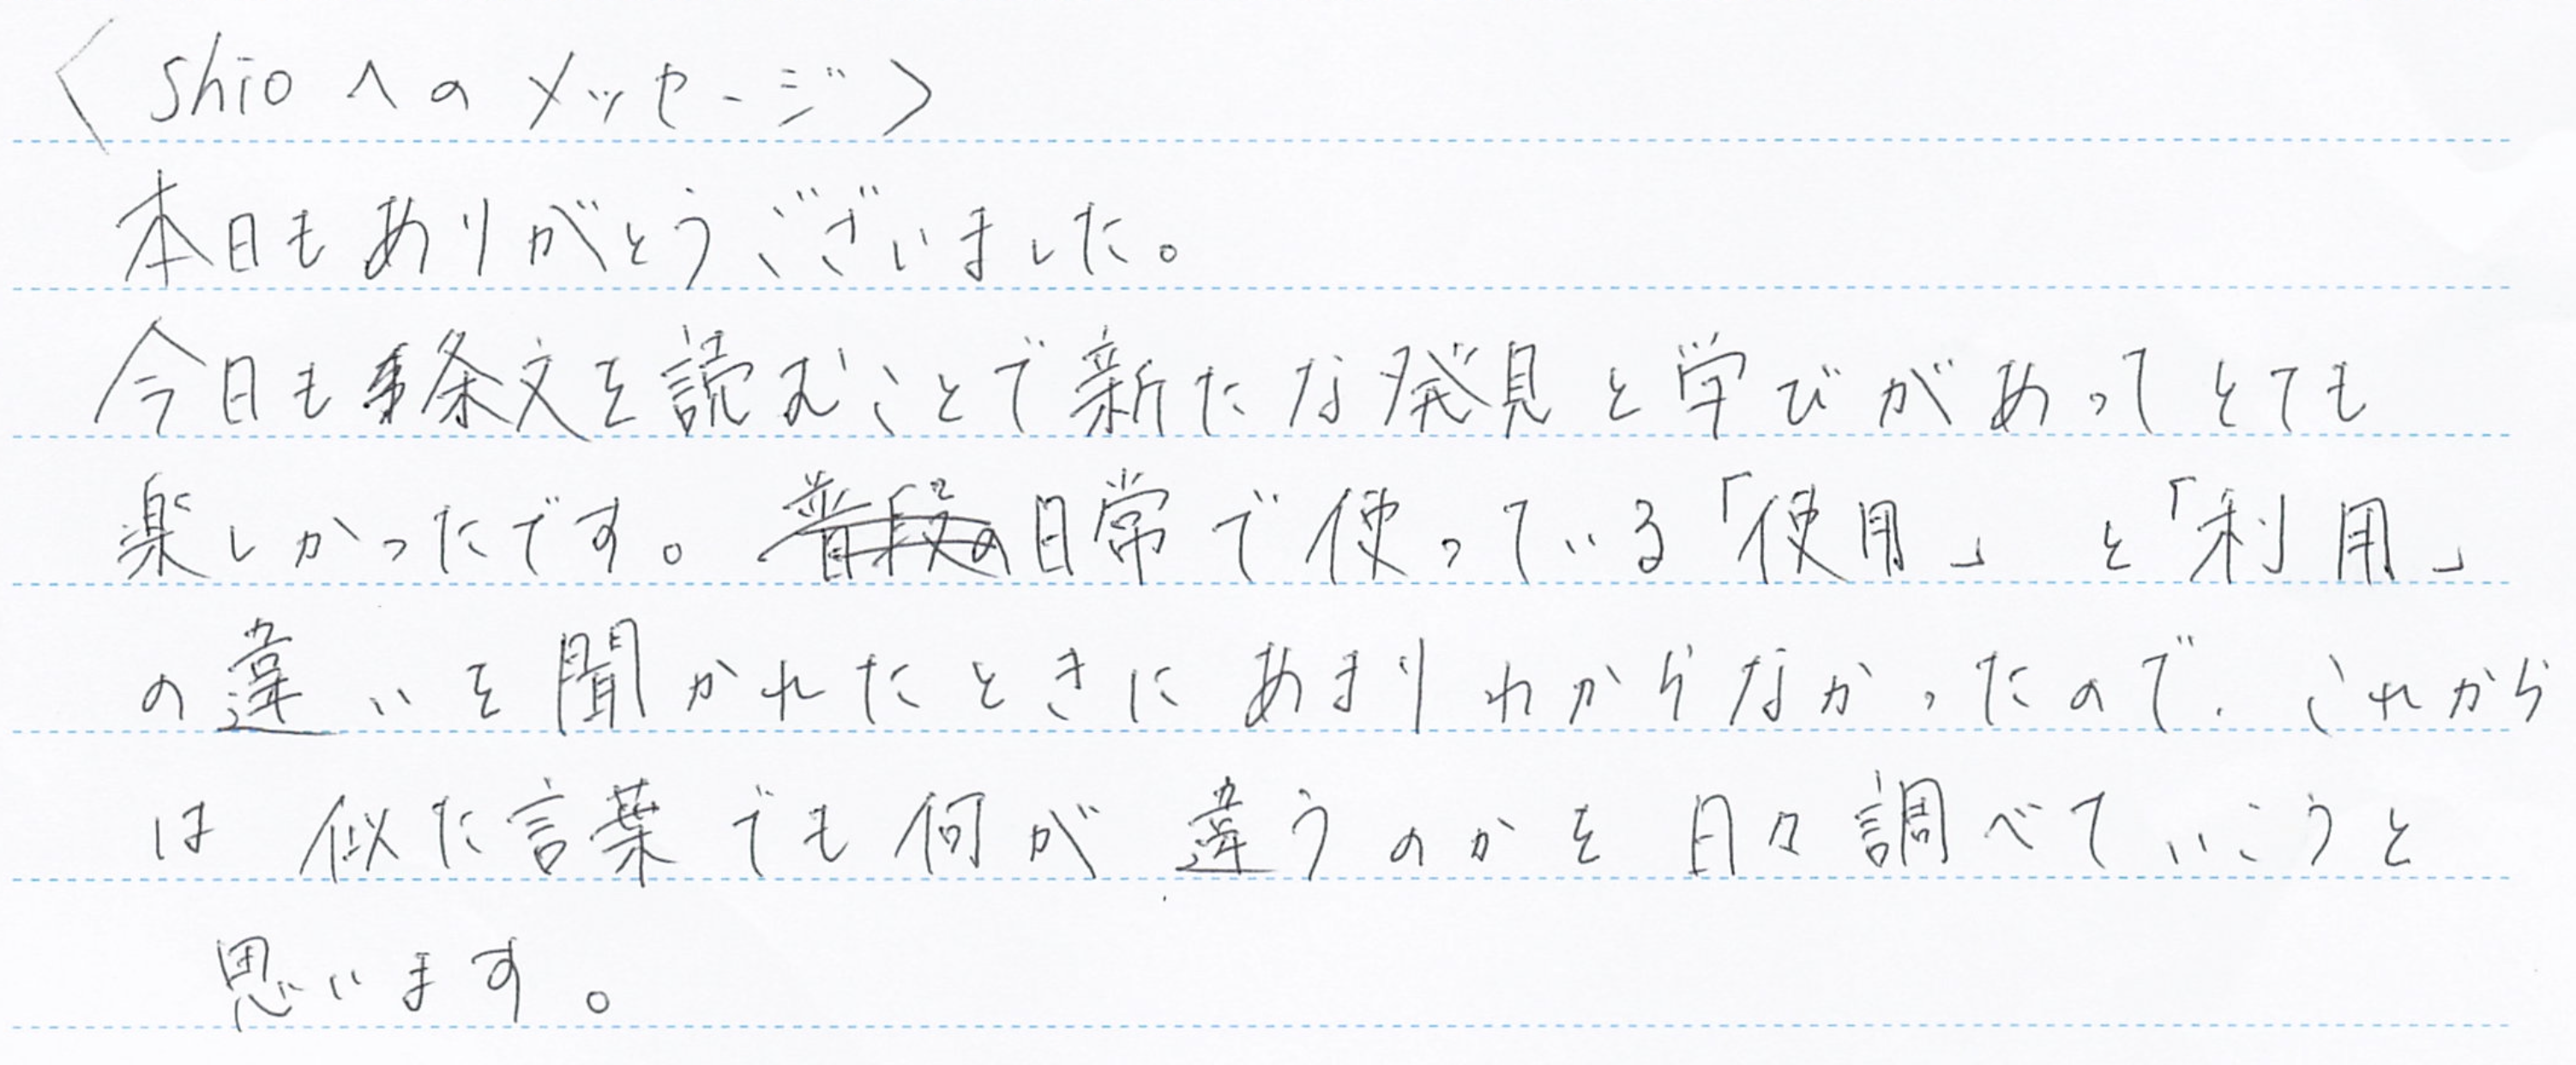 〈shioへのメッセージ〉
本日もありがとうございました。
今日も条文を読むことで新たな発見と学びがあってとても
楽しかったです。普段の日常で使っている「使用」と「利用」
の違いを聞かれたときにあまりわからなかったので、これから
は似た言葉でも何が違うのかを日々調べていこうと
思います。